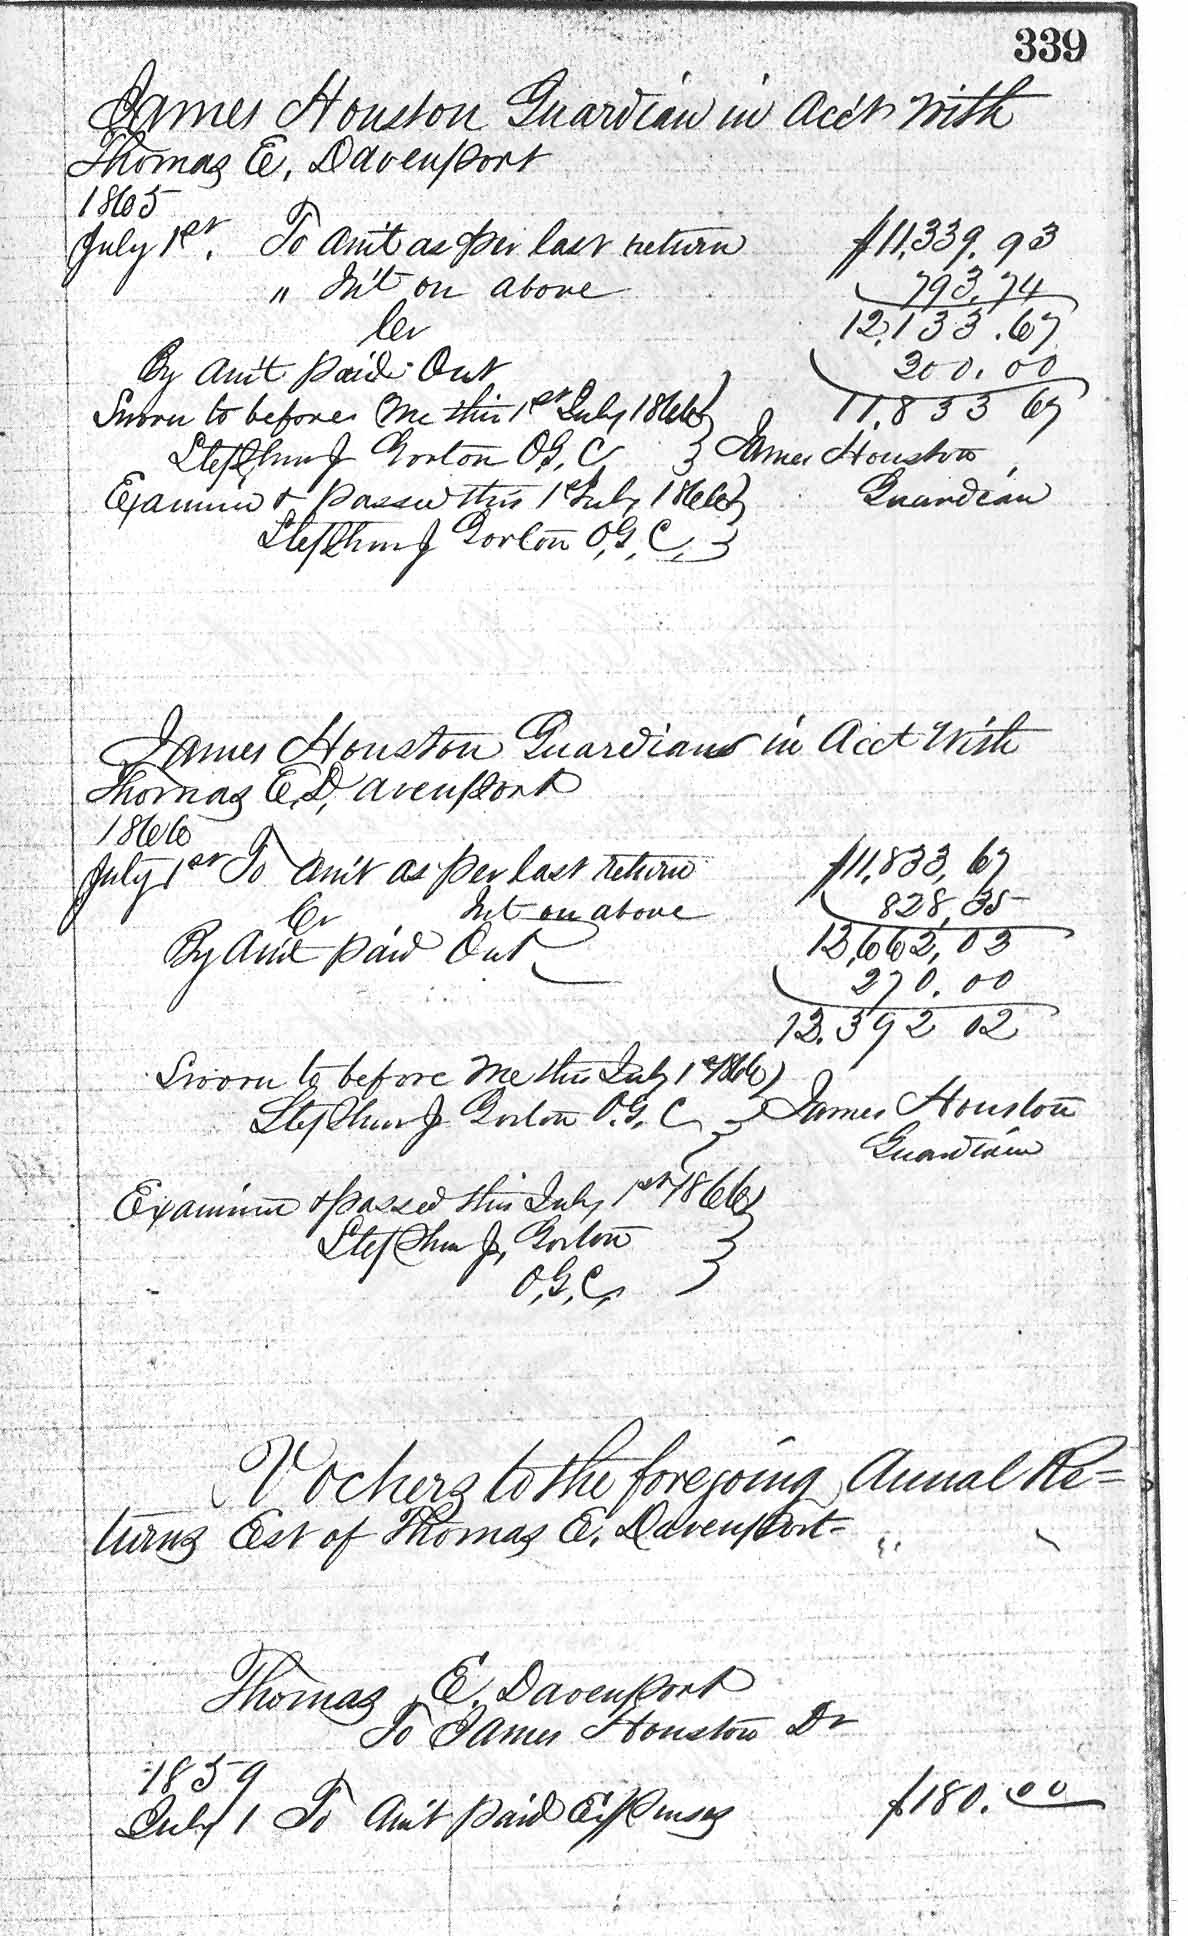 339
James Houston Guardian in Acct With
Thomas E. Davenport
1865
July 1st. To Am't as per last return $11,339.93
" Int on above 793.74
Cr 12,133.67
By Am't paid Out 300.00
Sworn to before Me this 1st July 1866 11,833 67
Stephen J Gorton O.G.C James Houston
Examined & passed this 1st July 1866 Guardian
Stephen J Gorton O.G.C.
James Houston Guardian in Acct With
Thomas E.D.avenport
1866
July 1st To Am't as per last return $11,833,67
Cr Int on above 828,35
By Am't paid Out 12,662,03
270.00
12.392 02
Sworn to before Me this July 1st 1866
Stephen J Gorton O.G.C James Houston
Guardian
Examined & passed this July 1st 1866
Stephen J, Gorton
O,G,C,
Vochers to the foregoing Annal Re=
turns Est of Thomas E. Davenport=
Thomas E. Davenport
To James Houston Dr
1859
July 1 To Am't paid Expenses $180.00